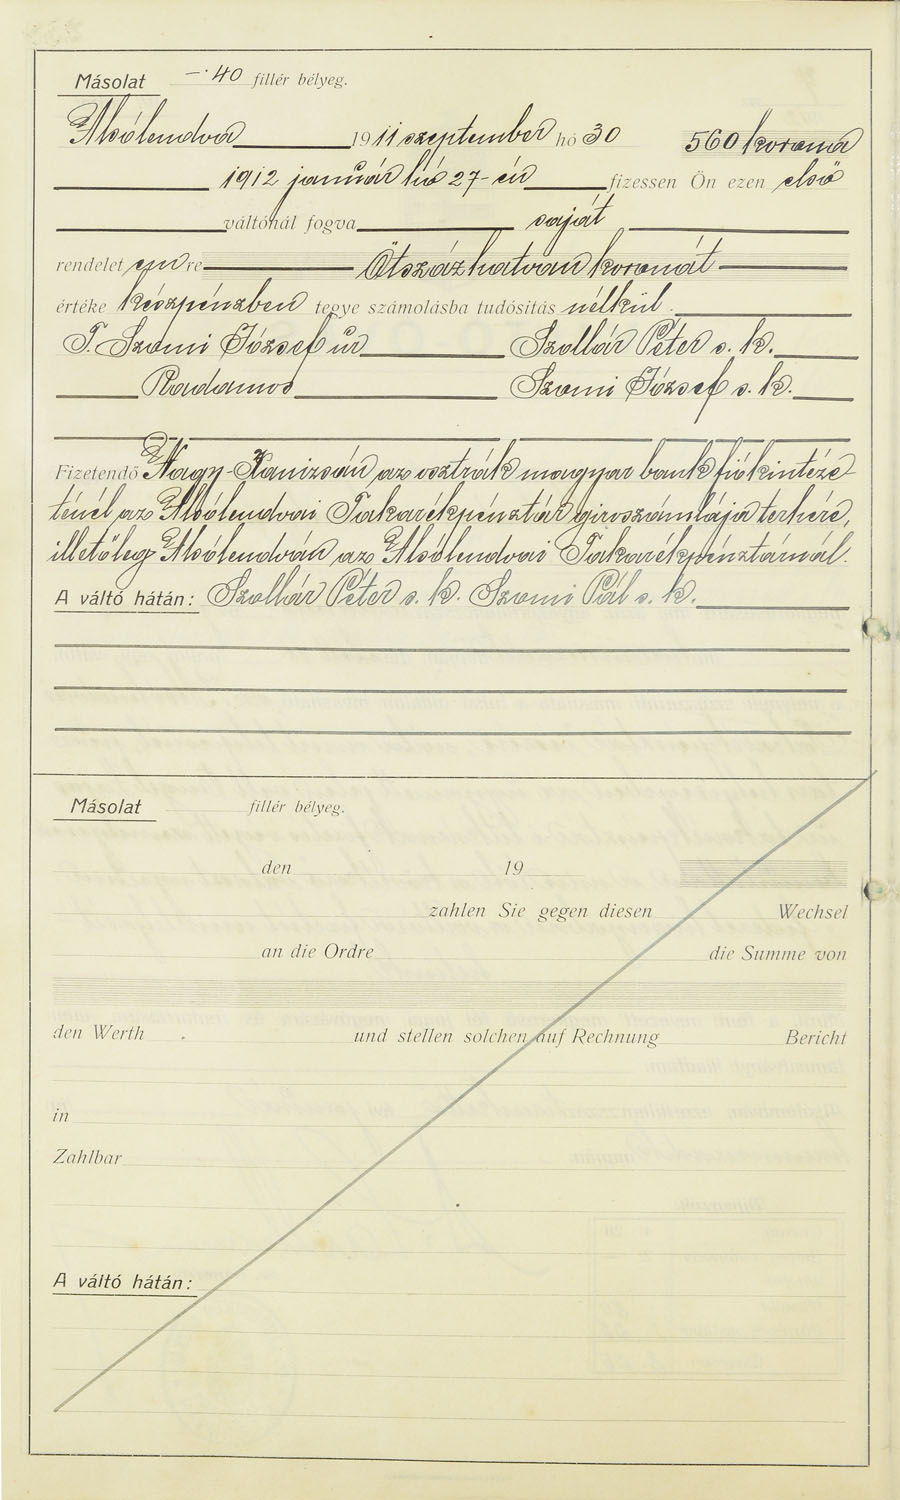 Másolat —·40 fillér bélyeg.
Alsólendva 1911 szeptember hó 30 560 korona
1912 január hó 27-én fizessen Ön ezen első
váltónál fogva saját
rendeletemre Ötszázhatvan koronát
értéke készpénzben tegye számolásba tudósítás nélkül.
T. Szomi József úr Szollár Péter s. k.
Radamos Szomi József s. k.
Fizetendő Nagy-Kanizsán az osztrák magyar bank fiókintéze-
ténél az Alsólendvai Takarékpénztár giroszámlája terhére,
illetőleg Alsólendván az Alsólendvai Takarékpénztárnál.
A váltó hátán: Szollár Péter s. k. Szomi Pál s. k.
Másolat fillér bélyeg.
den 19
zahlen Sie gegen diesen Wechsel
an die Ordre die Summe von
den Werth und stellen solchen auf Rechnung Bericht
in
Zahlbar
A váltó hátán: